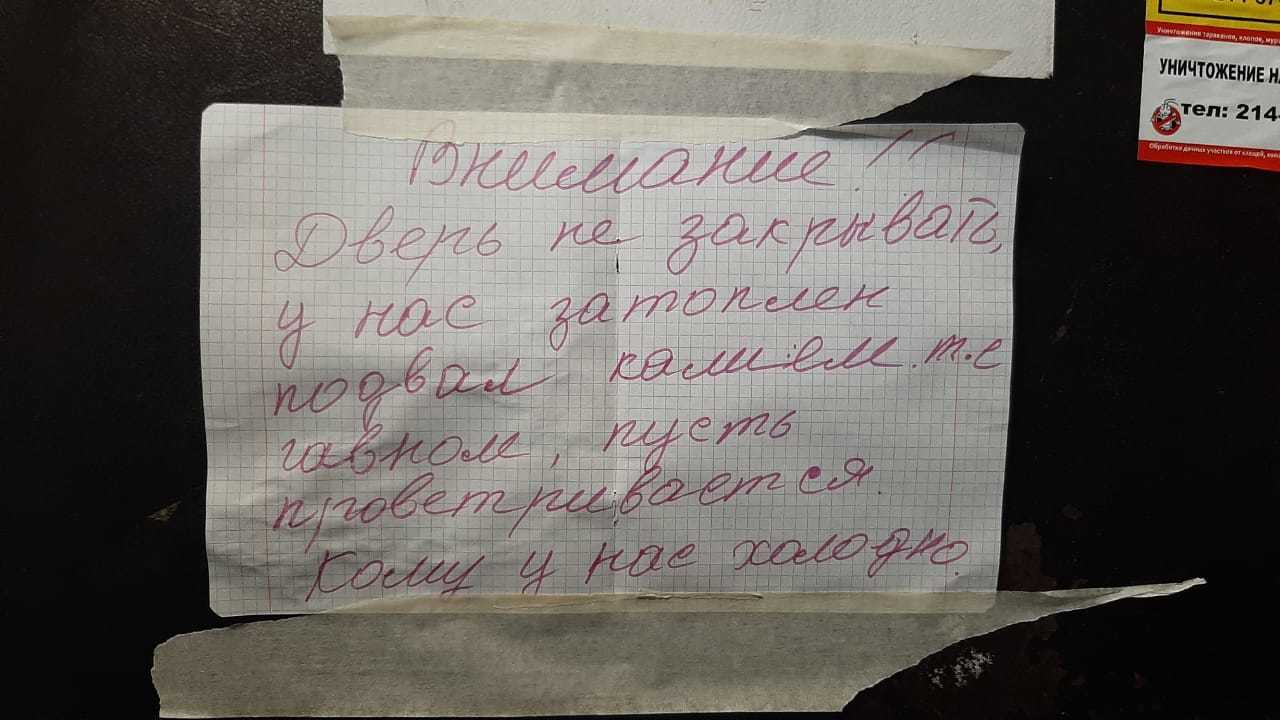 Внимание!!
Дверь не закрывать,
у нас затоплен
подвал калием. т.е
гавном, пусть
проветривается.
Кому у нас холодно.
Уничтожение тараканов, клопов, мур
УНИЧТОЖЕНИЕ НА
тел: 214-
Обработка дачных участков от клещей,